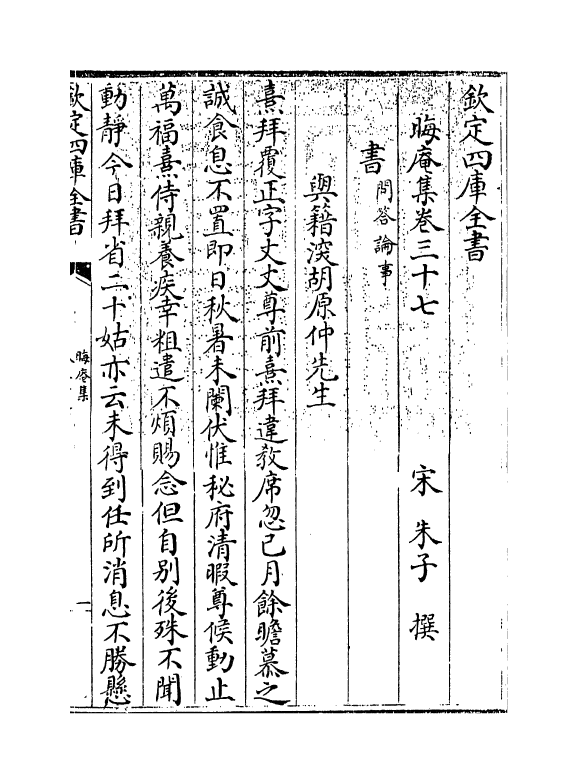 欽定四庫全書
晦庵集卷三十七
宋 朱子 撰
書問答論事
與籍溪胡原仲先生
熹拜覆正字丈丈尊前熹拜違教席忽已月餘瞻慕之
誠食息不置即日秋暑未闌伏惟秘府清暇尊候動止
萬福熹侍親養疾幸粗遣不煩賜念但自别後殊不聞
動靜今日拜省二十姑亦云未得到任所消息不勝懸
欽定四庫全書
晦庵集
一